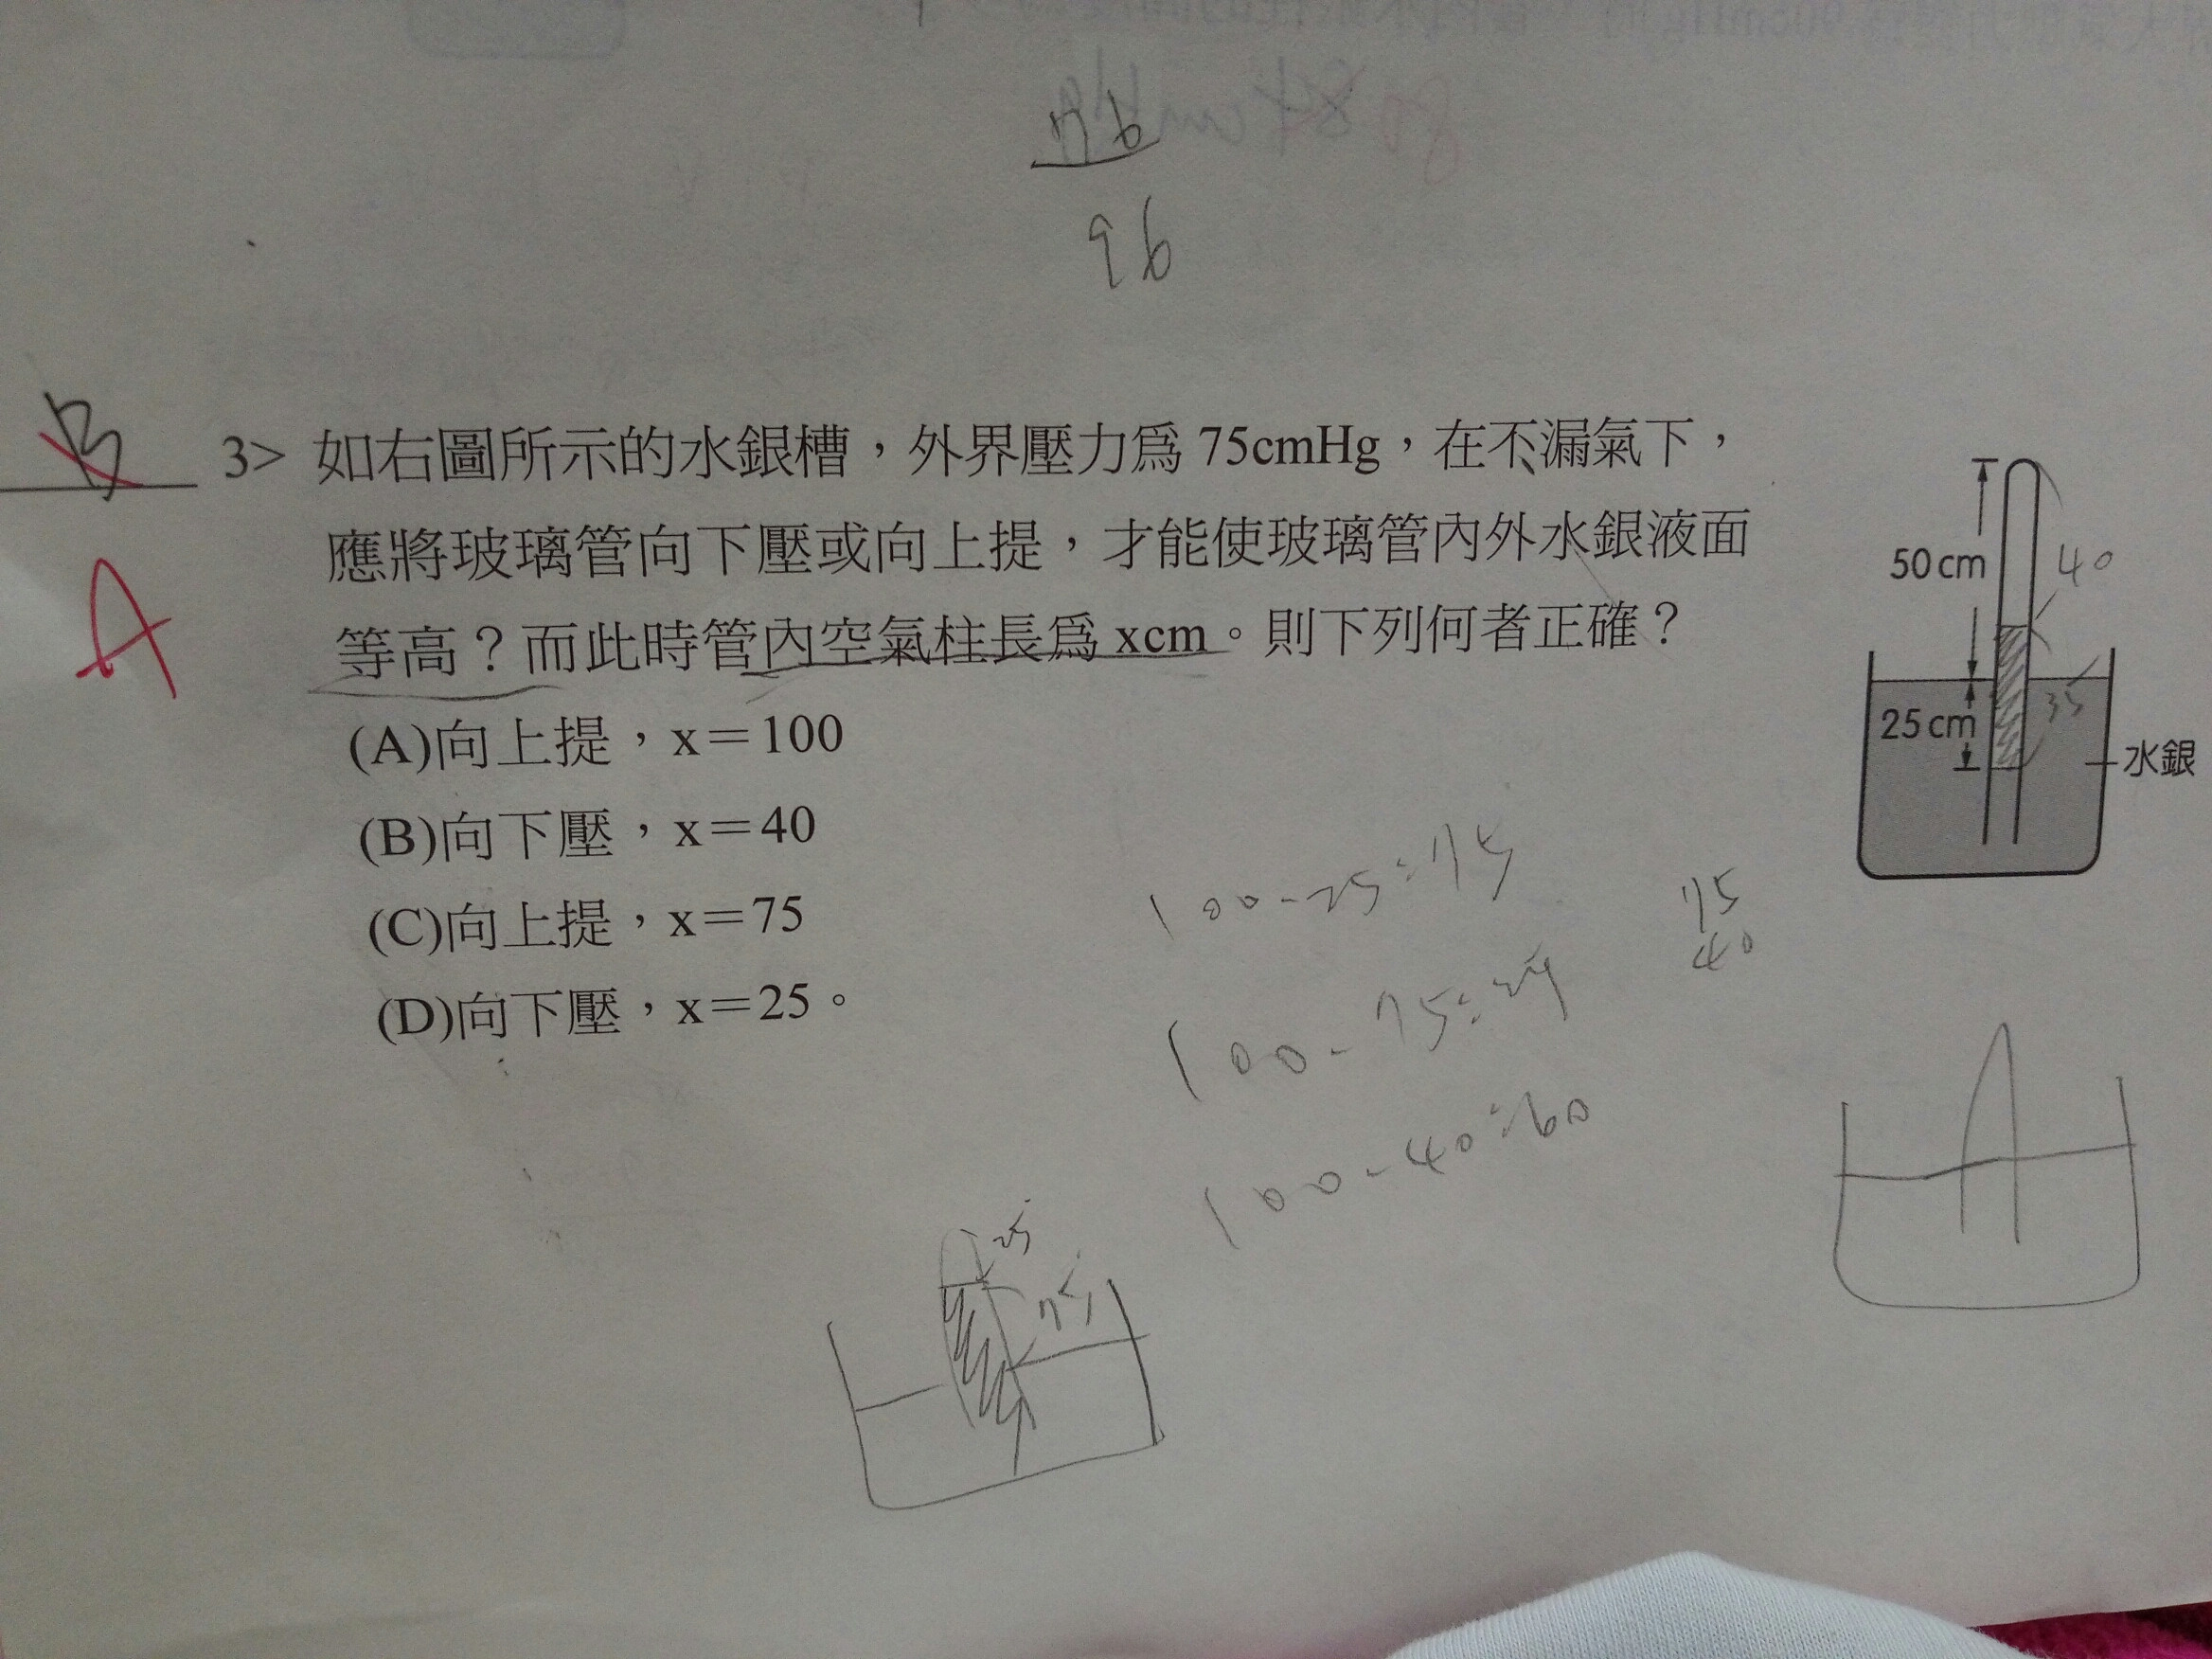 76
96
B
A
3> 如右圖所示的水銀槽，外界壓力為 75cmHg，在不漏氣下，
應將玻璃管向下壓或向上提，才能使玻璃管內外水銀液面
等高？而此時管內空氣柱長為 xcm。則下列何者正確？
(A)向上提，x＝100
(B)向下壓，x＝40
(C)向上提，x＝75
(D)向下壓，x＝25。
50cm
40
25cm
35
水銀
100-25=75
75
40
100-75=25
100-40=60
25
75